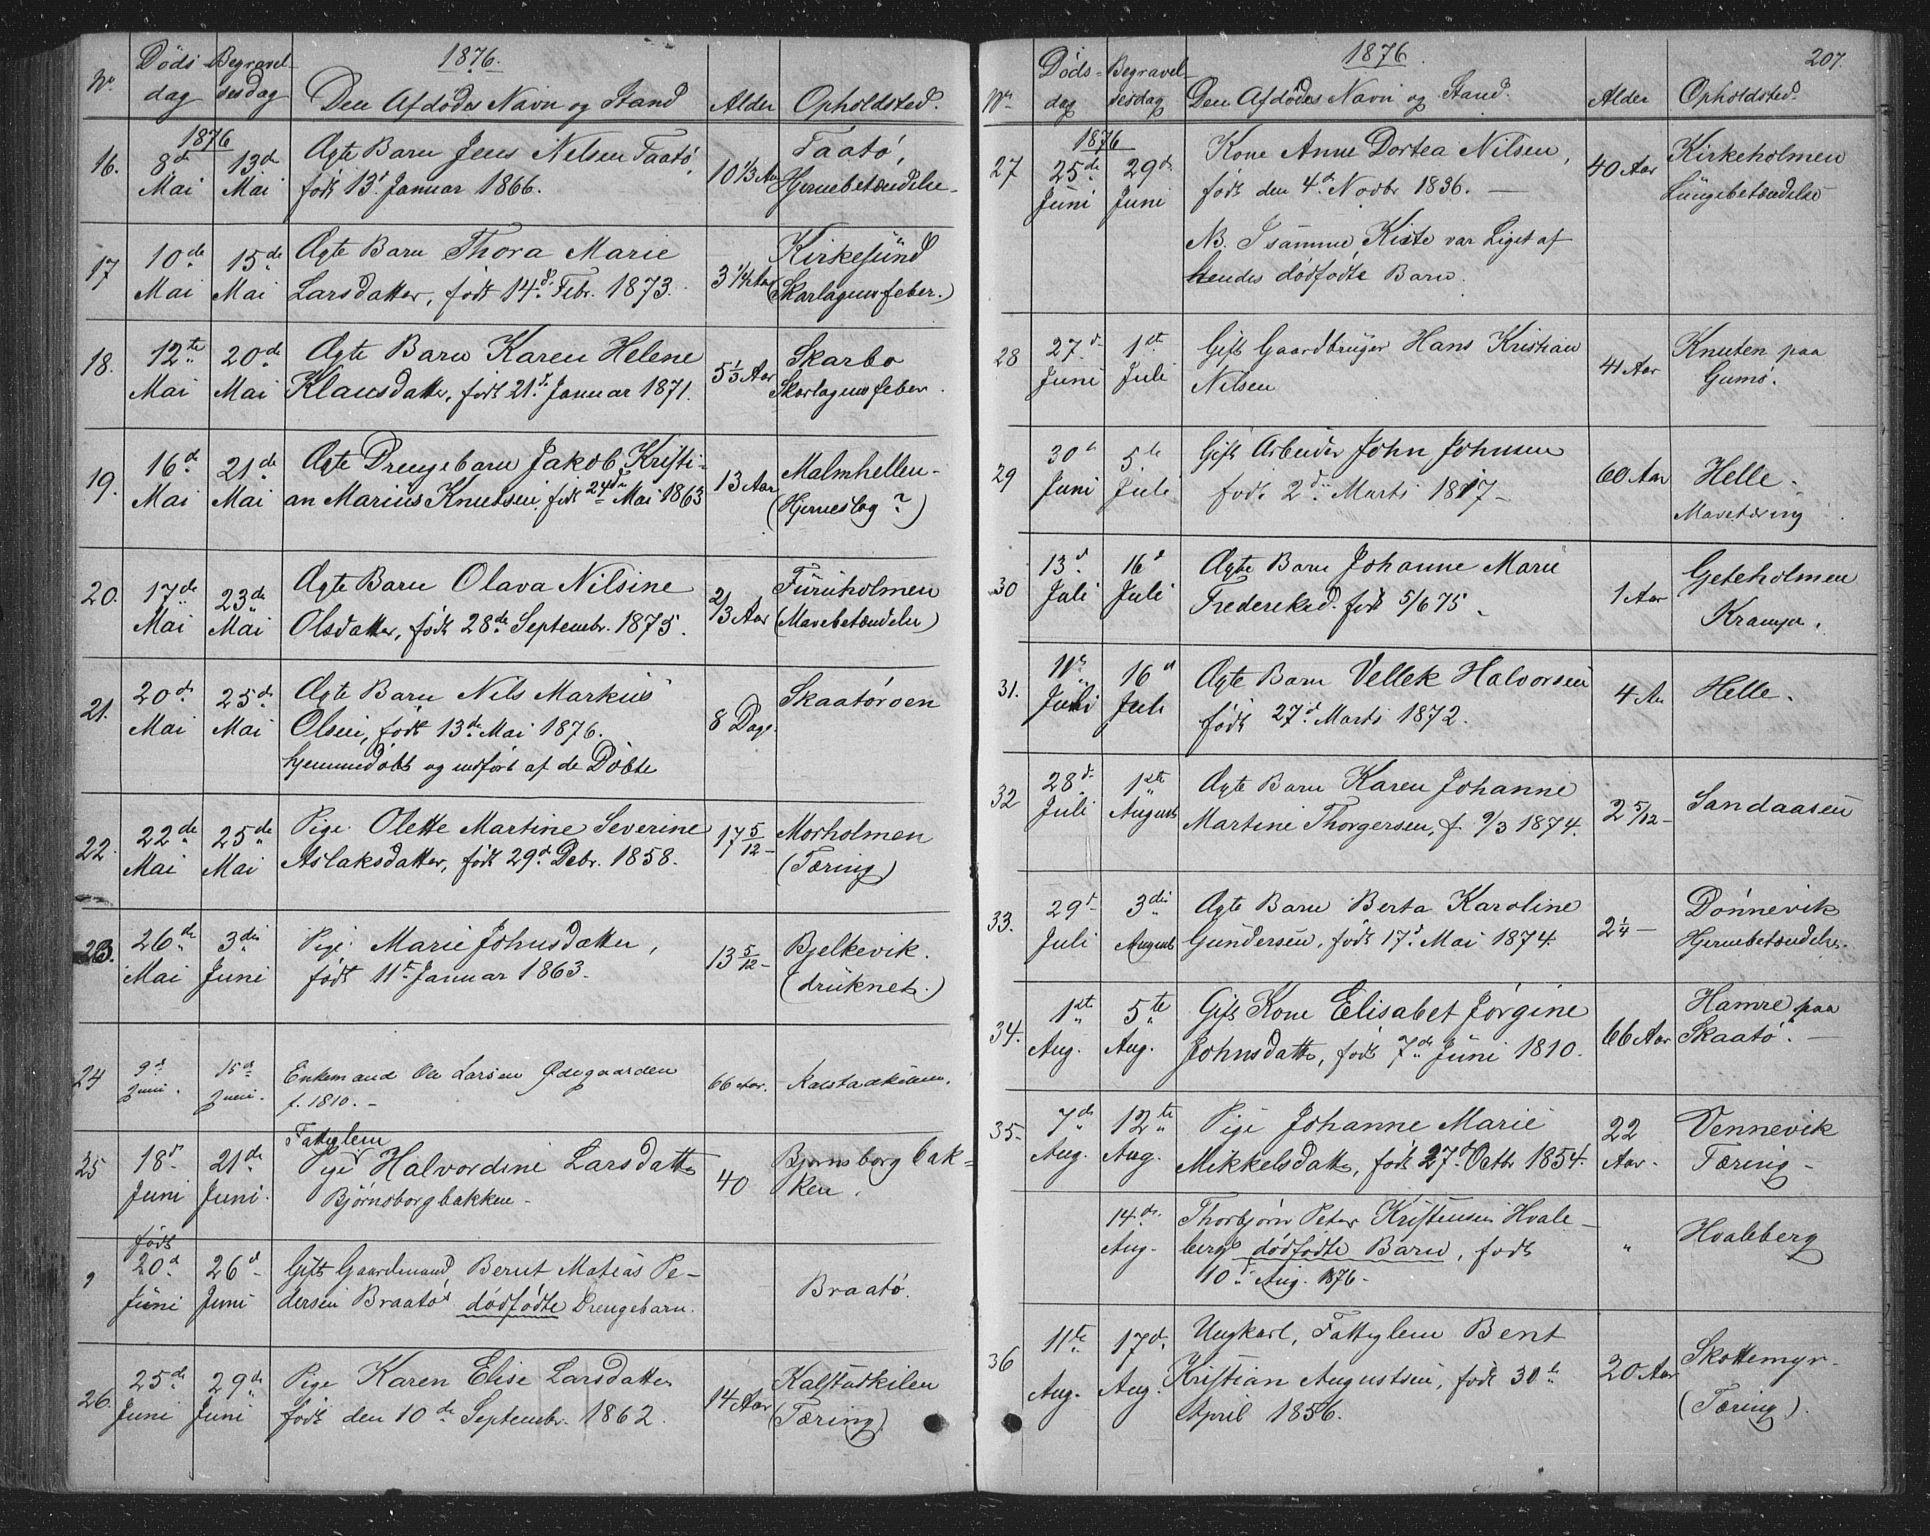 1876.
No Døds dag Begravelsesdag Den Afdødes Navn og Stand Alder Opholdsted.
1876
16. 8de Mai 13de Mai Ægte Barn Jens Nilsen Taatø, 10 1/3 Aar Taatø,
født 13d Januar 1866. Hjernebetændelse.
17 10de Mai 15de Mai Ægte Barn Thora Marie 3 1/4 Aar Kirkesund
Larsdatter, født 14d Febr. 1873. (Skarlagensfeber.)
18. 12te Mai 20de Mai Ægte Barn Karen Helene 5 1/3 Aar Skarbo
Klausdatter, født 21d Januar 1871. Skarlagensfeber.
19. 16d Mai 21de Mai Ægte Drengebarn Jakob Kristi- 13 Aar Malmhellen-
an Marius Knutsen, født 24de Mai 1863 (Hjerneslag?)
20. 17de Mai 23de Mai Ægte Barn Olava Nilsine 2/3 Aar Furuholmen
Olsdatter, født 28de Septembr. 1875. (Mavebetændelse)
21. 20de Mai 25de Mai Ægte Barn Nils Markus 8 Dage. Skaatørøen
Olsen, født 13de Mai 1876.
hjemmedøbt og indført af de Døbte
22. 22de Mai 25de Mai Pige Olette Martine Severine 17 5/12 - Morholmen
Aslaksdatter, født 29d Debr. 1858. (Tæring)
23. 26de Mai 3die Juni Pige Marie Johnsdatter, 13 5/12 - Bjelkevik.
født 11te Januar 1863. (druknet.)
24 9d Juni. 15d Juni. Enkemand Ole Larsen Ødegaarden 66 Aar. Kalstadkilen.
f. 1810. -
25 18d Juni 21de Juni. Fattiglem
Pige Halvordine Larsdatter 40 Bjørnsborgbak-
Bjørnsborgbakken - ken.
født
20d Juni 26d Juni Gift Gaardmand Bernt Matias Pe- Braatø.
dersen Braatø's dødfødte Drengebarn.
26. 25de Juni 29de Juni Pige Karen Elise Larsdatter 14 Aar Kalstadkilen
født den 10de Septembr. 1862. (Tæring)
1876. 207.
No Døds- dag Begravelsesdag Den Afdødes Navn og Stand. Alder Opholdsted.
1876
27 25de Juni 29d Juni Kone Anne Dortea Nilsen, 40 Aar Kirkeholmen
født den 4de Novbr 1836. - Lungebetændelse
NB. I samme Kiste var Liget af
hendes dødfødte Barn.
28 27d Juni 1ste Juli Gift Gaardbruger Hans Kristian 41 Aar Knuten paa
Nilsen Gumø.
29 30te Juni 5te Juli Gift Arbeider John Johnsen 60 Aar Helle.
født 2d Marts 1817- Mavetæring
30 13d Juli 16d Juli Ægte Barn Johanne Marie 1 Aar Geteholmen
Frederiksd. født 5/6 75. Krampe.
31. 11te Juli 16d Juli Ægte Barn Vellek Halvorsen 4 Aar Helle.
født 27d Marts 1872.
32 28d Juli 1ste August Ægte Barn Karen Johanne 2 5/12 - Sandaasen
Martine Thorgersen, f. 9/3 1874.
33. 29d Juli 3die August Ægte Barn Berta Karoline 2 1/4 - Dønnevik
Gundersen, født 17d Mai 1874. Hjernebetændelse.
34. 1ste Aug. 5te Aug. Gift Kone Elisabet Jørgine 66 Aar Hamre paa
Johnsdatter, født 7de Juni 1810. Skaatø. -
35- 7de Aug. 12te Aug. Pige Johanne Marie 22 Aar. Vennevik
Mikkelsdatter, født 27d Octbr 1854. Tæring -
14de Aug. Thorbjørn Peter Kristensen Hvale- " Hvaleberg
bergs dødfødte Barn, født
10d Aug. 1876-
36 11te Aug. 17d. Aug. Ungkarl, Fattiglem Bent 20 Aar Skottemyr.
Kristian Augustsen, født 30te (Tæring).
April 1856.